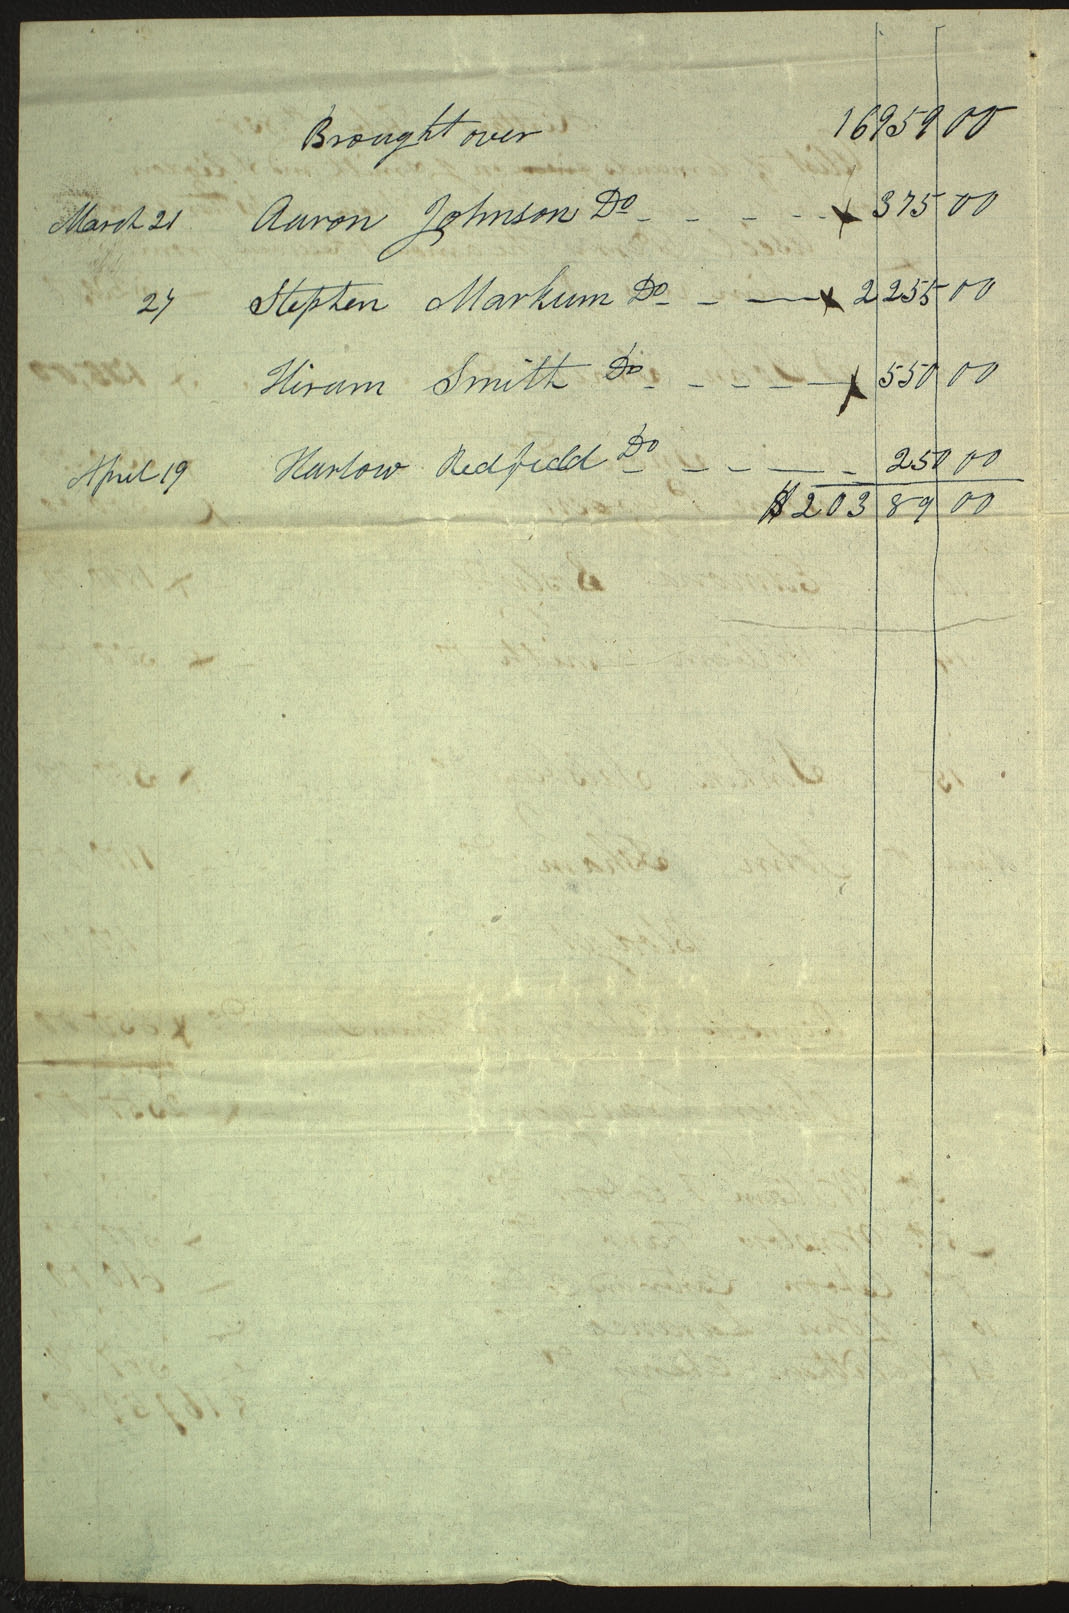 Brought over 16959 00
March 21 Aaron Johnson Do - - - - x 375 00
27 Stephen Markum Do - - — x 2255 00
Hiram Smith Do - - - - — x 550 00
April 19 Harlow Redfield Do - - - — - 250 00
$20389 00